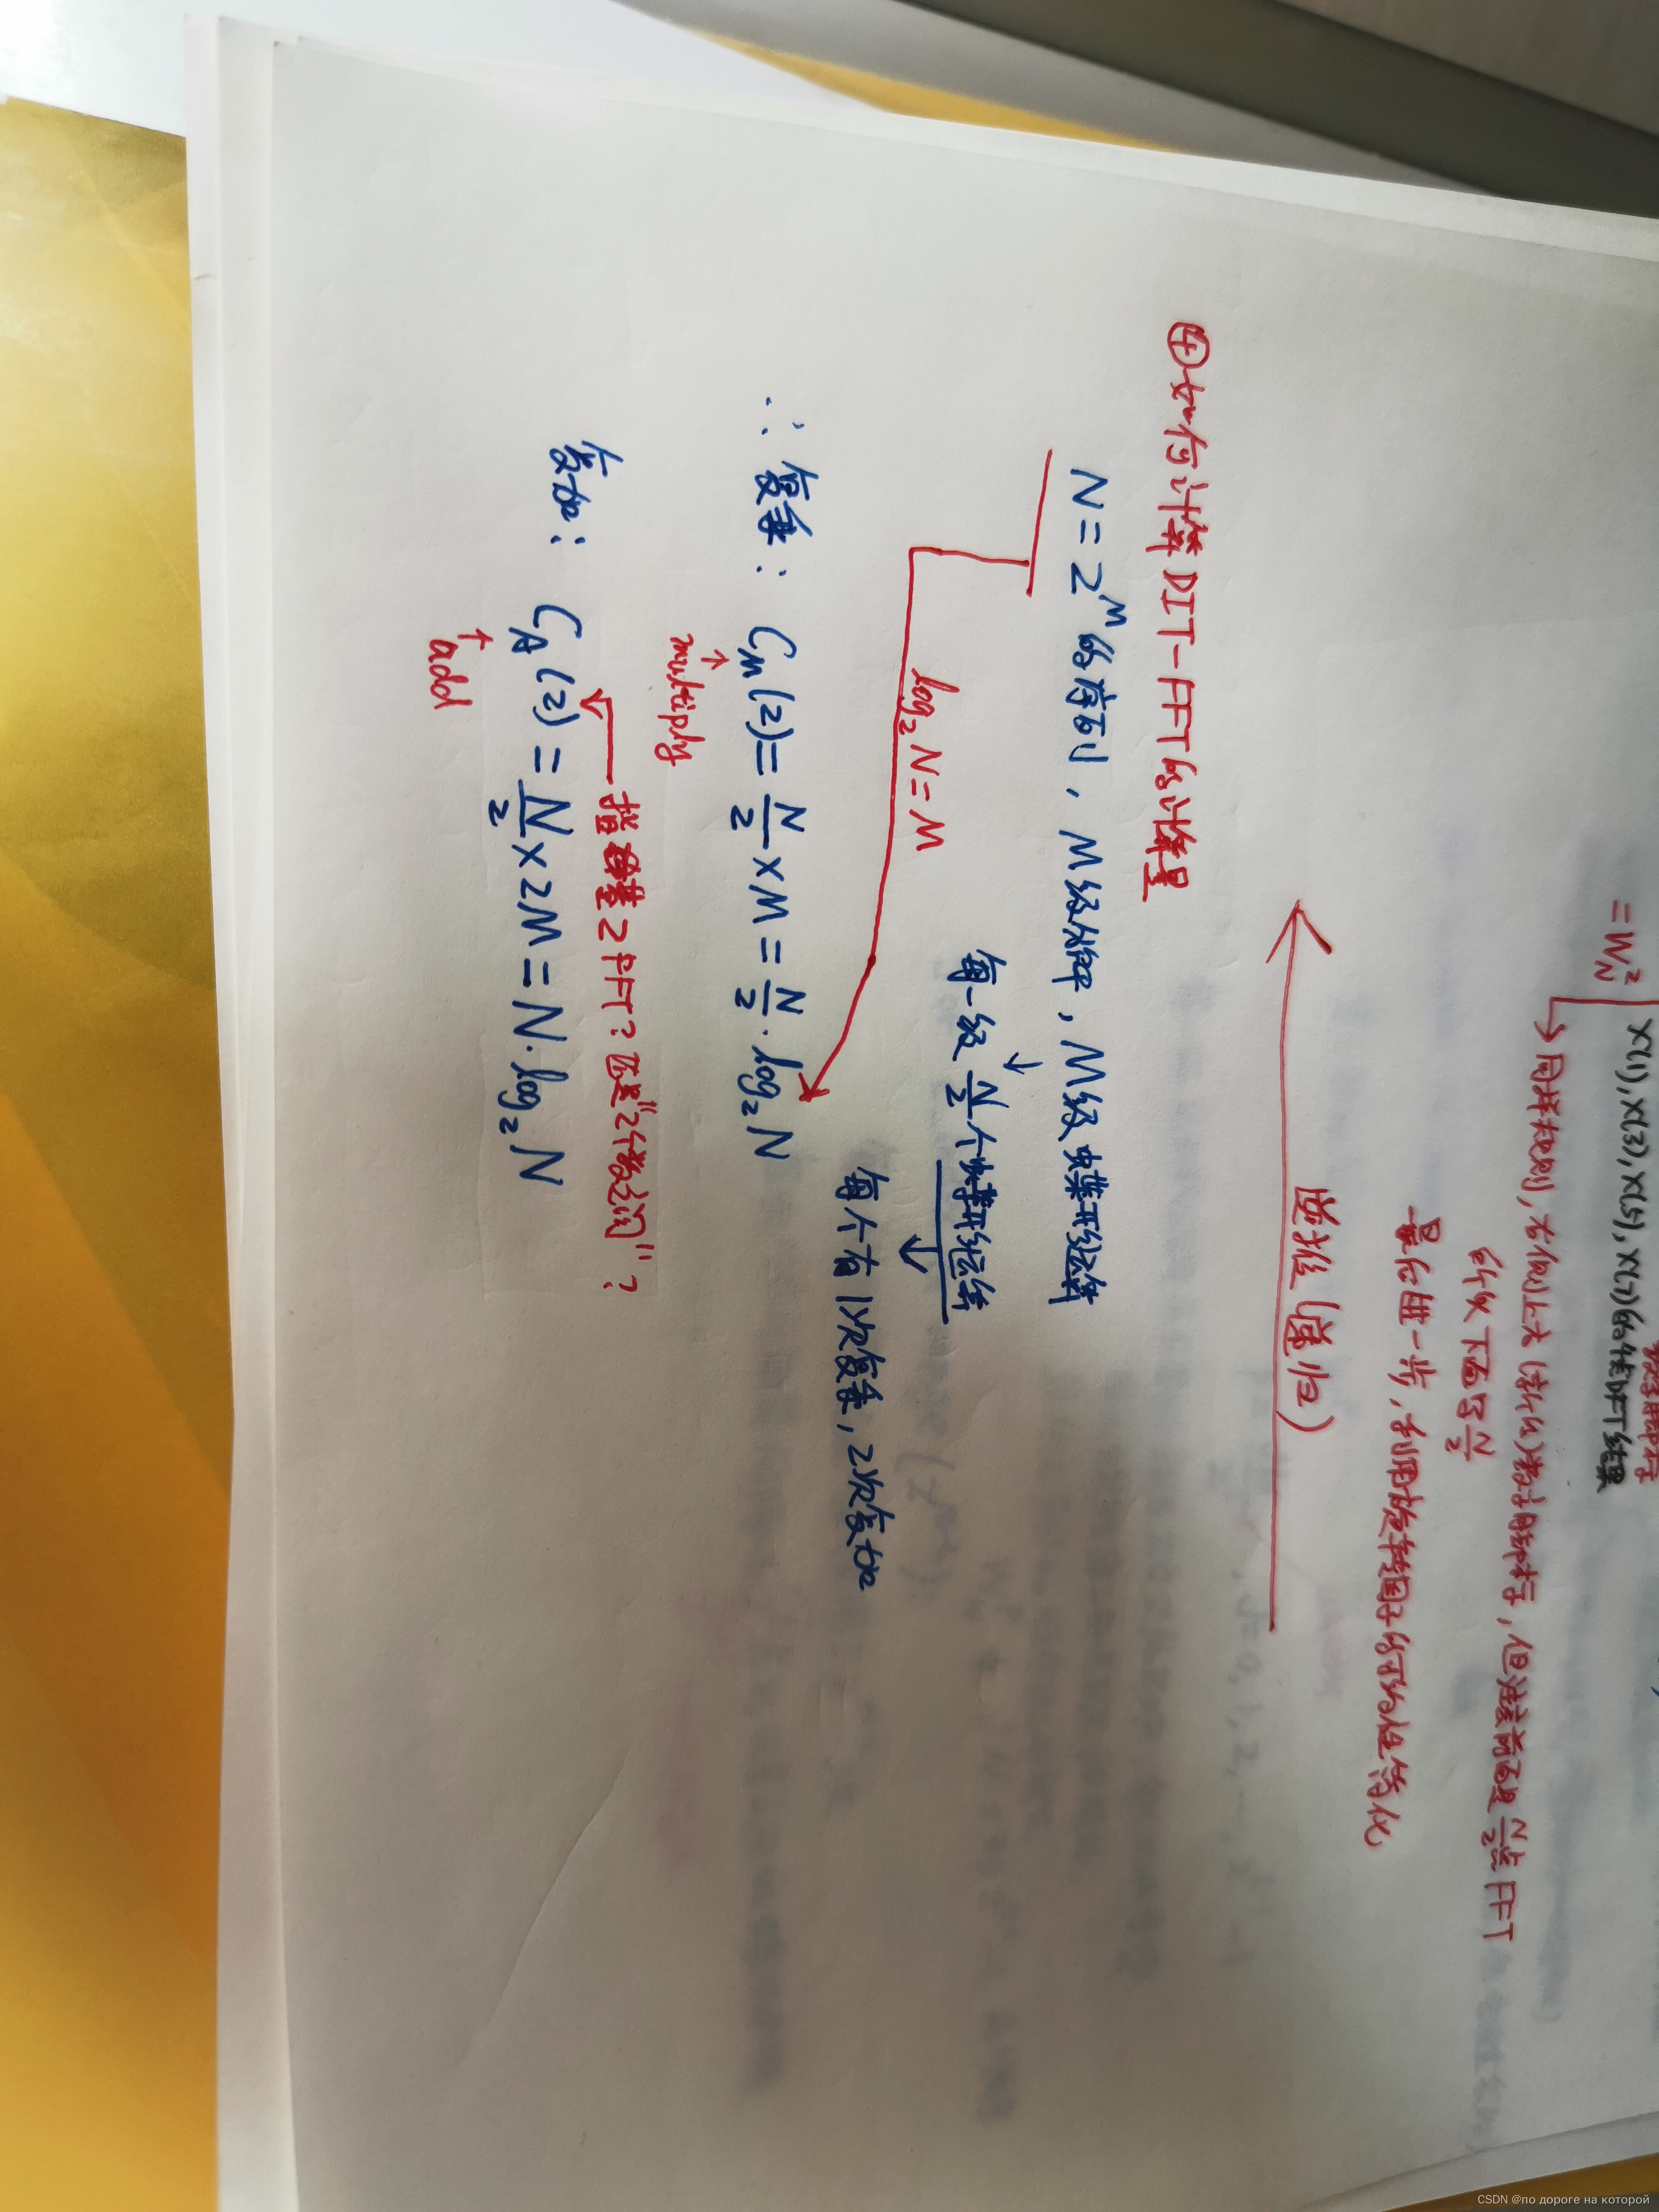 = W_N^2
X(1), X(3), X(5), X(7)的4点DFT结果
→同样规则, 右侧上大(新的)数字用中标, 但注意前面是 N/2 点 FFT
所以下面写 N/2
最后进一步, 利用旋转因子的可约性简化
逆推(递归)
④如何计算DIT-FFT的计算量
N=2^M 的序列, M级分解, M级蝶形运算
每一级 N/2 个蝶形运算
log_2 N=M
每个有1次复乘, 2次复加
∴ 复乘: C_M(2)= N/2 ×M= N/2 · log_2 N
↑
multiply
指基2FFT? 还是"2个数之间"?
复加: C_A(2)= N/2 ×2M=N·log_2 N
↑
add
CSDN @по дороге на которой